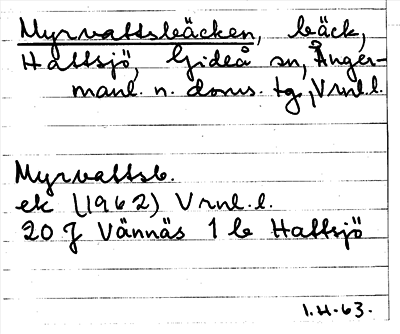 Myrvattsbäcken, bäck,
Hattsjö, Gideå sn, Ånger-
manl. n. doms. tg., Vrnl.l.
Myrvattsb.
ek (1962) Vrnl.l.
20 J Vännäs 1 b Hattsjö
1.H.63.